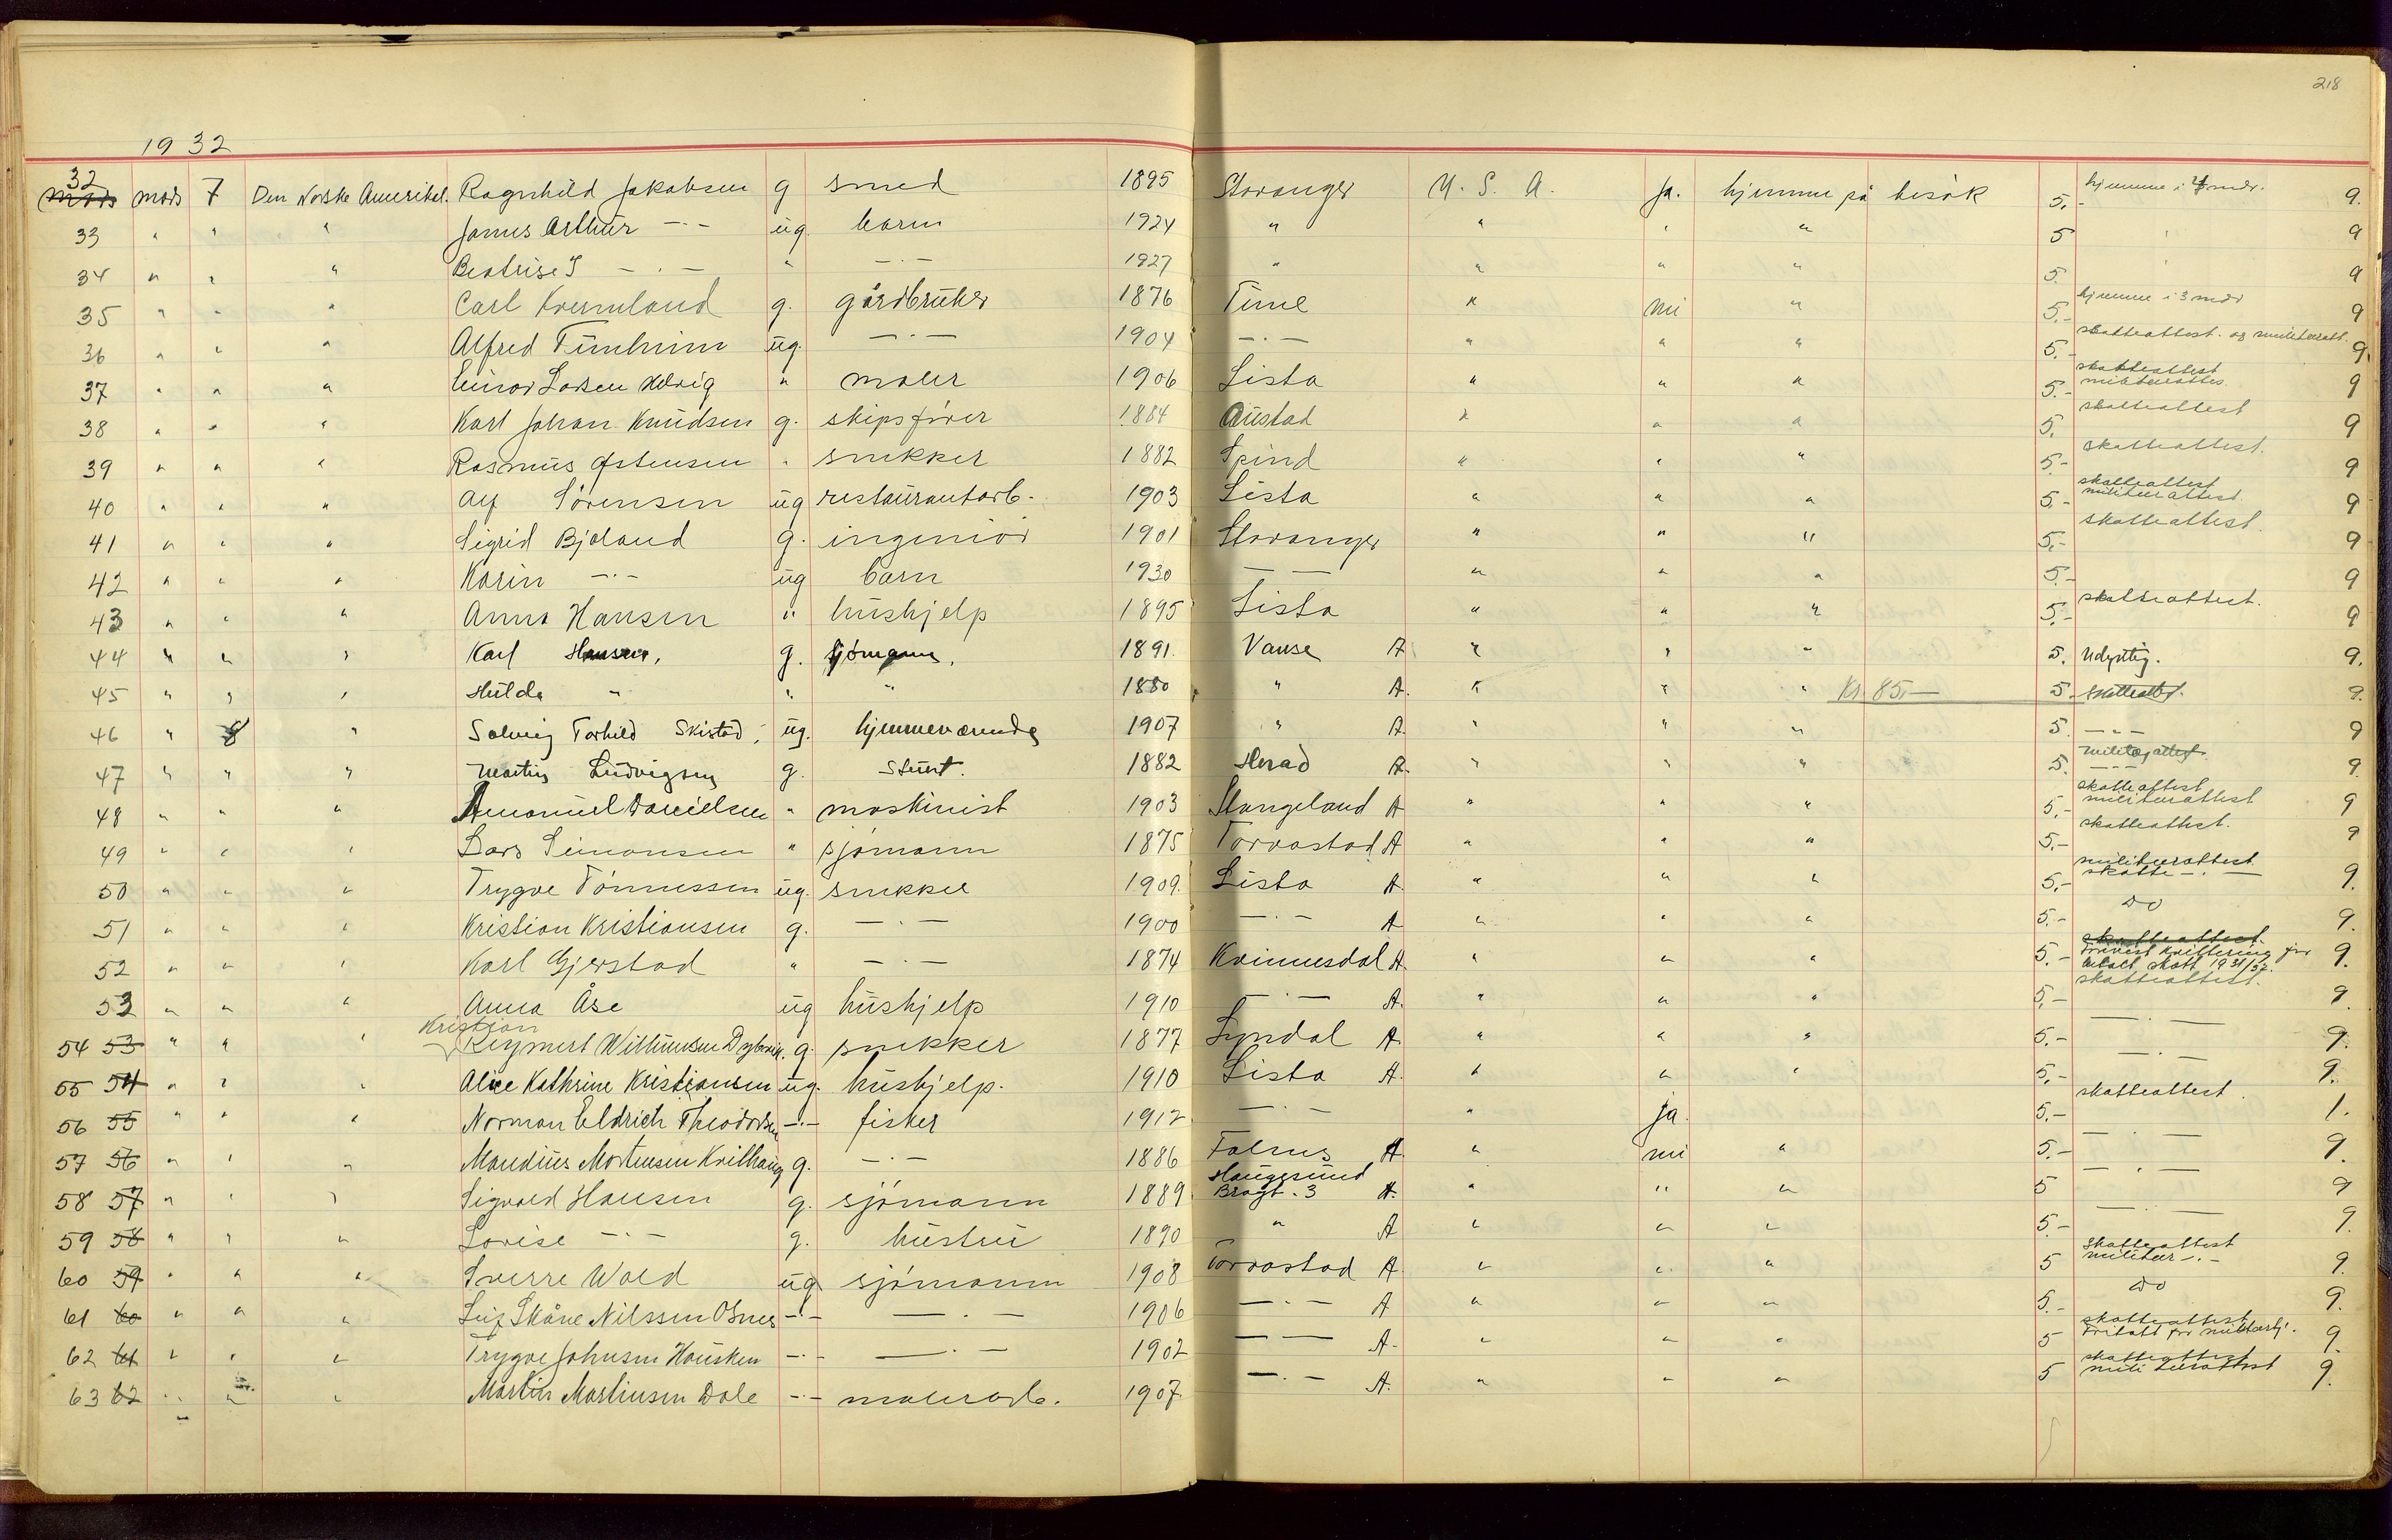 218
1932
32 mars 7 Den Norske Amerikal. Ragnhild Jakobsen g smed 1895 Stavanger U. S. A. Ja. hjemme på besök 5.- hjemme i 4 mdr. 9.
33 " " " James Arthur -·- ug. barn 1924 " " " " 5 " 9
34 " " " Beatrise S -·- " -·- 1927 " " " " 5. " 9
35 " " " Carl Kvernland g. gårdbruker 1876 Time " nei " 5.- hjemme i 3 mdr 9
36 " " " Alfred Tunheim ug. -·- 1904 -·- " " " 5.- skatteattest. og militæratt. 9.
37 " " " Einar Larsen Helvig " maler 1906 Lista " " " 5.- skatteattest militærattes. 9
38 " " " Karl Johan Knudsen g. skipsförer 1884 Austad " " " 5. skatteattest 9
39 " " " Rasmus Østensen " snekker 1882 Spind " " " 5.- skatteattest. 9
40 " " " Alf Sörensen ug restaurantarb. 1903 Lista " " " 5.- skatteattest militærattest. 9
41 " " " Sigrid Bjoland g. ingeniör 1901 Stavanger " " " 5.- skatteattest. 9
42 " " " Karin -·- ug barn 1930 — — " " " 5.- 9
43 " " " Anna Hansen " hushjelp 1895 Lista " " " 5.- skatteattest. 9
44 " " " Karl Hansen, g. sjömann, 1891. Vanse A " " " 5. Udyktig. 9.
45 " " " Hulda " " " 1880 " A. " " " Kr. 85.— 5. skatteatt. 9.
46 " 8 " Solveig Torhild Skistad, ug. hjemmeværende 1907 " A. " " " 5. -·- 9
47 " " " Martin Ludvigsen g. Stuert. 1882 Herad A. " " " 5. Militæjattest. -·- 9.
48 " " " Emanuel Danielsen " maskinist 1903 Stangeland A " " " 5.- skatteattest militærattest 9
49 " " " Lars Simonsen " sjömann 1875 Torvastad A " " " 5.- skatteattest. 9
50 " " " Trygve Tönnessen ug. snekker 1909. Lista A " " " 5.- militærattest skatte -·- 9.
51 " " " Kristian Kristiansen g. -·- 1900 -·- A " " " 5.- do 9.
52 " " " Karl Gjerstad " -·- 1874 Kvinnesdal A " " " 5.- skatteattest. forevist kvittering for betalt skatt 1931/32. 9.
53 " " " Anna Åse ug hushjelp 1910 -·- A. " " " 5.- skatteattest. 9
Kristian
54 53 " " " Reymert Willumsen g. snekker 1877 Lyndal A " " " 5.- —·— 9.
55 54 " " " Alice Kathrine Kristiansen ug. hushjelp. 1910 Lista A. " " " 5.- —·— 9.
56 55 " " " Norman Eldrich Theodorsen -·- fisker 1912 -·- " ja. 5.- skatteattest. 1.
57 56 " " " Mandius Mortensen Kvilhaug g. -·- 1886 A. " nei " 5.- —·— 9.
58 57 " " " Sigvald Hansen g. sjömann 1889 Haugesund Bragt. 3 A. " " " 5 —·— 9
59 58 " " " Lovise -·- g. hustru 1890 " A " " " 5.- —·— 9.
60 59 " " " Sverre Wold ug sjömann 1908 Torvastad A " " " 5 skatteattest militær -·- 9.
61 60 " " " Skåne Nilssen -·- —·— 1906 -·- A " " " 5.- do 9.
62 61 " " " Trygve Johnsen Hausken -·- —·— 1902 — — A. " " " 5 skatteattest fritatt for militærtj. 9.
63 62 " " " Martin Martinsen Dale -·- malerarb. 1907. -·- A. " " " 5 skatteattest militærattest 9.